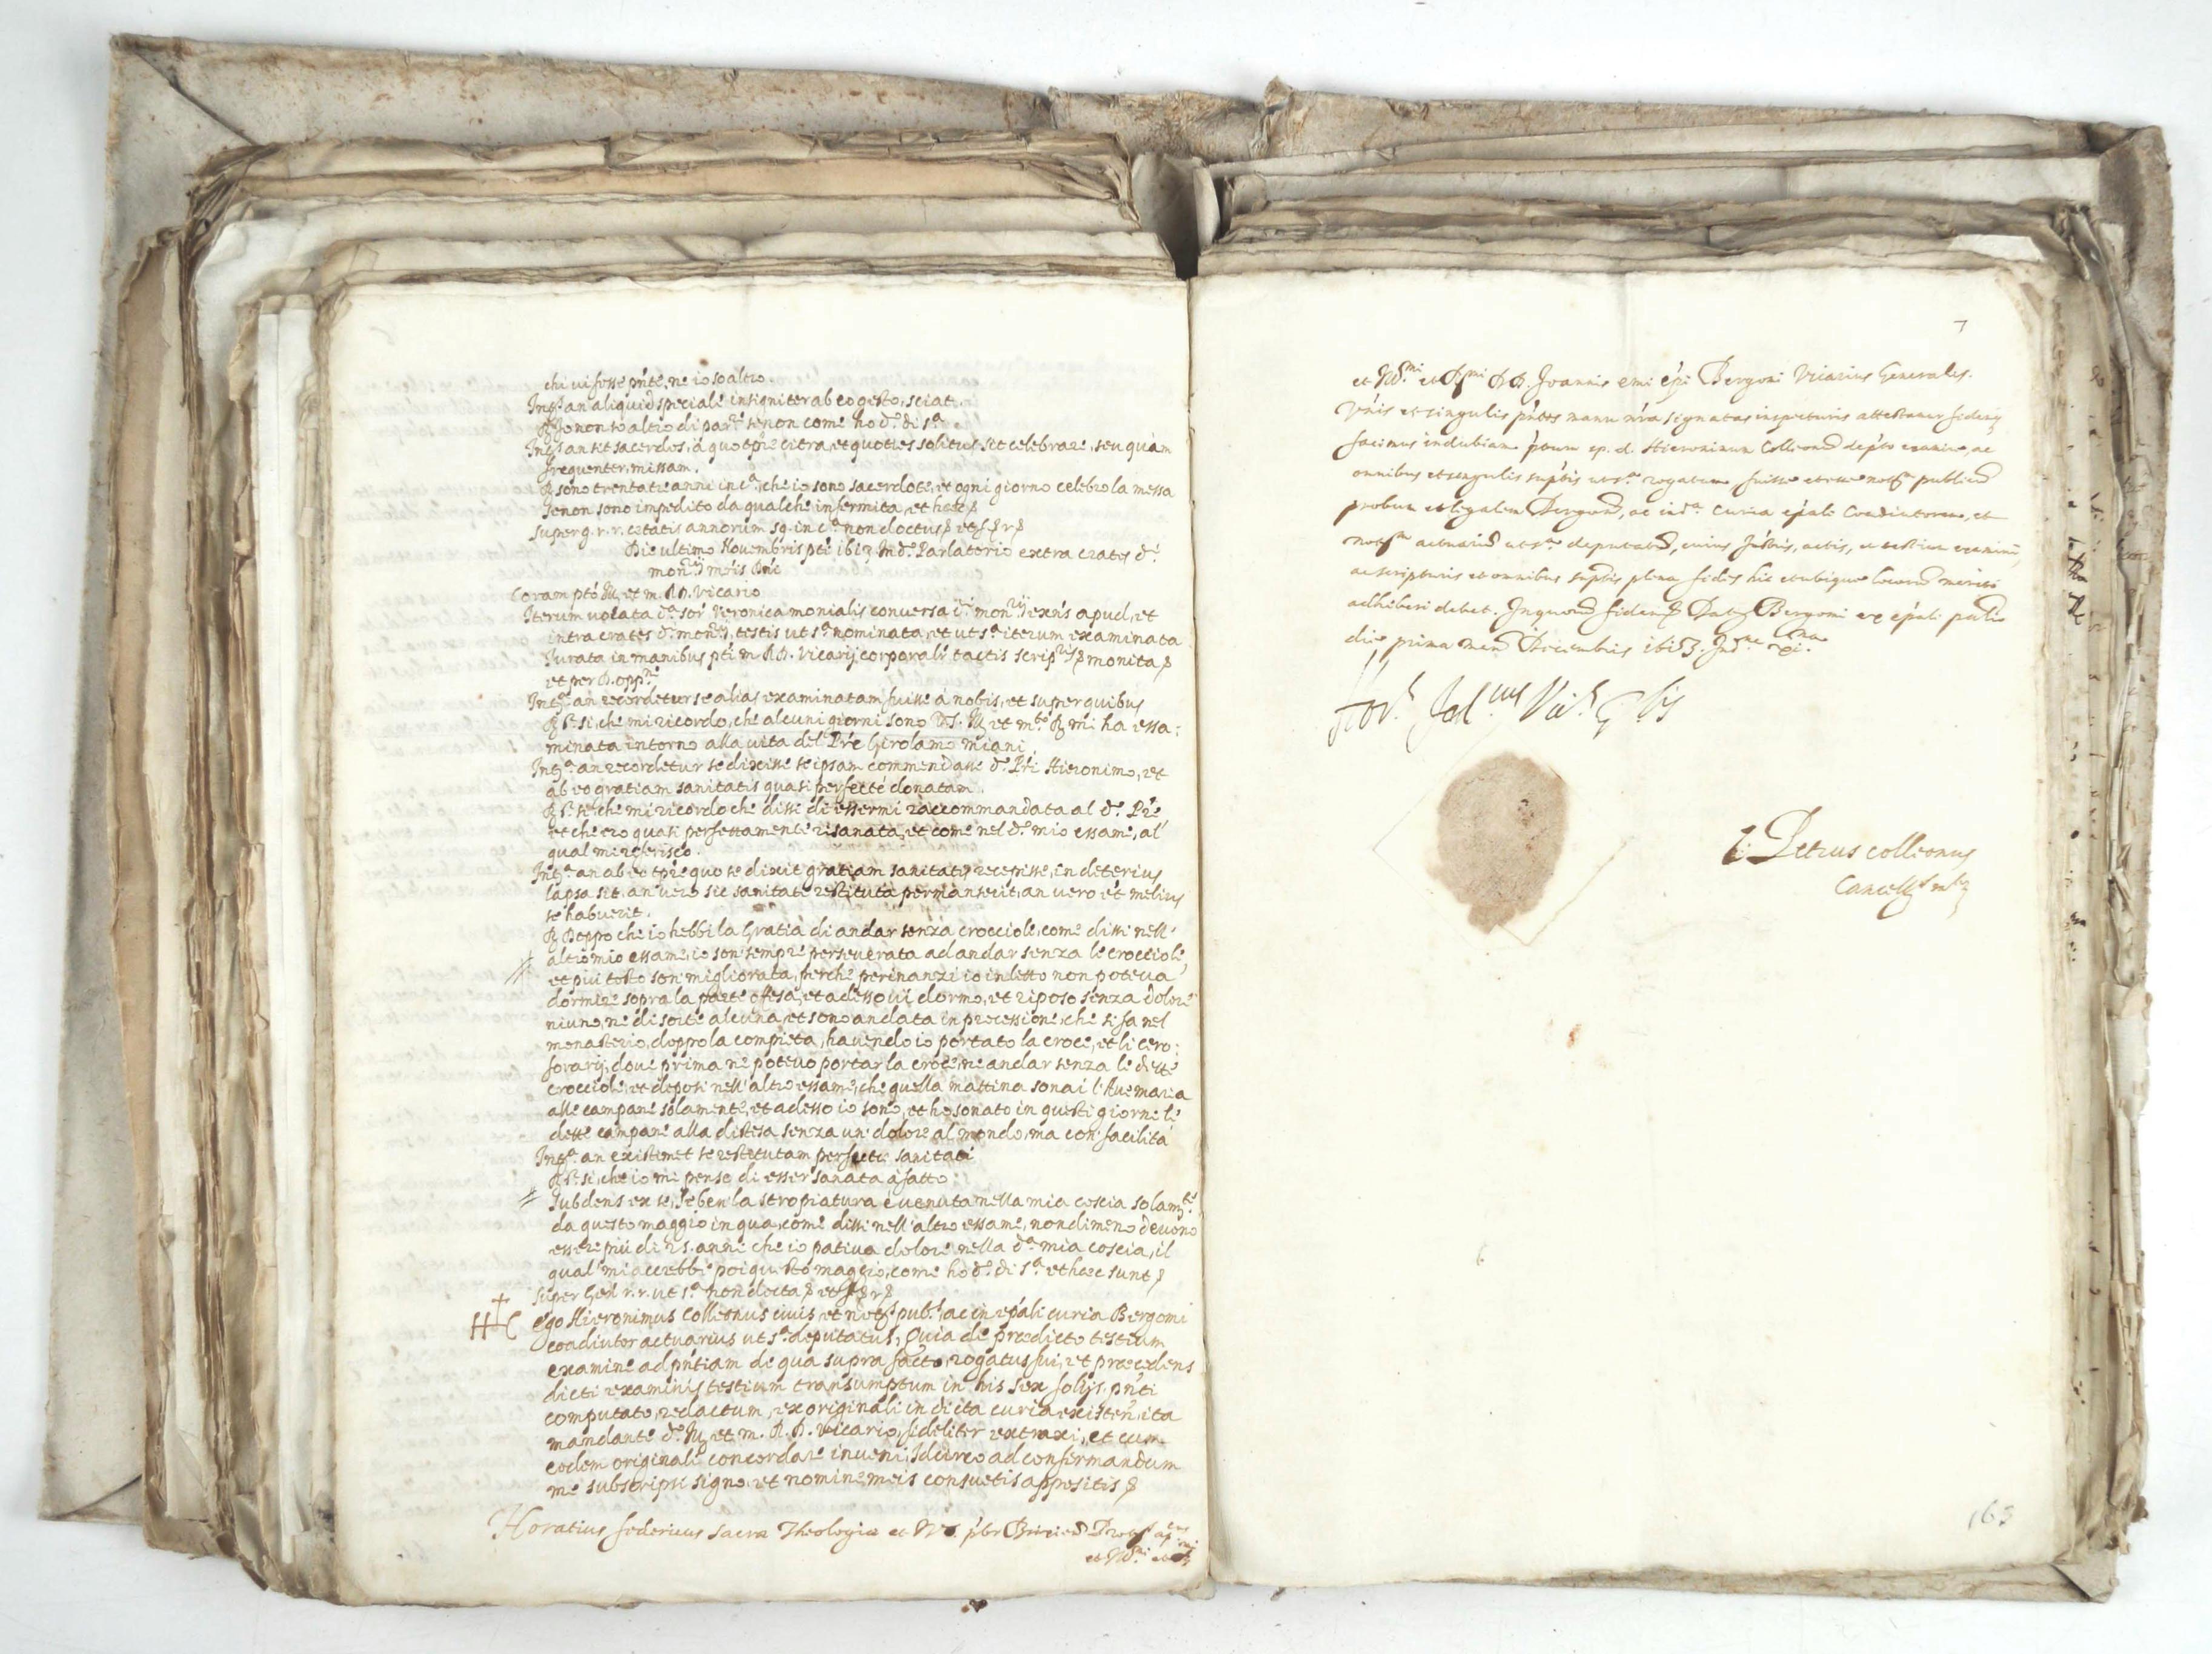 chi ui fosse pn̄te, ne io so altro.
Int.s an aliquid speciale insigniter ab eo gesto, sciat.
R. Io non so altro di par.re se non come ho d.o di s.a
Int.s an sit sacerdos, à quo tp̄re citra, et quoties solitus sit celebrare, seu quàm
frequenter, missam.
R. sono trentatre anni in c.a, che io sono sacerdote, et ogni giorno celebro la messa
se non sono impedito da qualche infermità, et hæc
super g. r. r. ætatis annorum 59. in c.a non doctus
Die ultimo Novembris pti 1613. Ind.e Parlatorio extra crates d.i
mon.rij
Coram p̄to Ill. et m. R. D. Vicario
Iterum vocata d.a sor Veronica monialis conversa d.i mon.rij exn̄s apud, et
intra crates d.i mon.rij, testis ut s.a nominata, et ut s.a iterum examinata
Jurata in manibus p̄ti m. R. D. Vicarij corporalr̄ tactis scrip.ris monita
et per D. opp.ne
Int.a an recordetur se alias examinatam fuisse à nobis, et super quibus
R. P. si, che mi ricordo, che alcuni giorni sono V.S. Ill. et m.to R. mi ha essa:
minata intorno alla uita del Pr̄e Girolamo Miani.
Int.a an recordetur se dixisse se ipsam commendasse d.o Pr̄i Hieronimo, et
ab eo gratiam sanitatis quasi perfectè donatam.
R. P. si, che mi ricordo che dissi di essermi raccommandata al d.o Pr̄e
et che ero quasi perfettamente risanata, et come nel d.o mio essame, al
qual mi referisco.
Int.a an ab eo tp̄re quo se dixit gratiam sanitatis recepisse, in deterius
lapsa sit, an vero sic sanitate restituta permanserit, an vero et melius
se habuerit.
R. Doppo che io hebbi la Gratia di andar senza crocciole, come dissi nell'
altro mio essame, io son sempre perseverata ad andar senza le crocciole,
et piu tosto son migliorata, perche per inanzi io in letto non poteua
dormire sopra la parte offesa, et adesso ui dormo, et riposo senza dolore
niuno, ne di sorte alcuna, et sono andata in processione, che si fa nel
monasterio, doppo la compieta, havendo io portato la croce, et li cero:
ferarij, doue prima ne poteuo portar la croce, ne andar senza le dette
crocciole, et deposi nell'altro essame, che quella mattina sonai l'Aue maria
alle campane solamente, et adesso io sono, et ho sonato in questi giorni le
dette campane alla distesa senza un dolore al mondo, ma con facilità
Int.a an existimet se restitutam perfectæ sanitati
R. P. si, che io mi penso di esser sanata à fatto
Subdens ex se, se ben la stropiatura è uenuta nella mia coscia solam.te
da questo maggio in qua, come dissi nell'altro essame, nondimeno deuono
essere più di 25. anni che io patiua dolore nella d.a mia coscia, il
qual mi accrebbe poi questo maggio, come ho d.o di s.a et hæc sunt
super r. r. ut s.a non docta
HC Ego Hieronimus Colleonus ciuis, et not.s pub.s ac in ep̄ali curia Bergomi
coadiutor actuarius ut s.a deputatus, Quia de prædicto testium
examine ad pn̄tiam de qua supra facto, rogatus fui, et præcedens
dicti examinis testium transumptum in his sex folijs pn̄ti
computato, redactum, ex originali in dicta curia existen̄, ita
mandante d.o Ill. et m. R. D. Vicario, fideliter extraxi, et cum
eodem originale concordare inveni, Idcirco ad confirmandum
me subscripsi signo, et nomine meis consuetis appositis
Horatius Federicus Sacræ Theologiæ et
et Ill.mi et
7
et Ill.mi et R.mi D. D. Joannis Emi ep̄i Bergomi Vicarius Generalis.
Vn̄is et singulis pn̄tes manu nr̄a signatas inspecturis attestamur fidemq
facimus indubiam d. Hieronimum Colleonū de p̄to examine, ac
omnibus et singulis sup̄tis ut s.a rogatum fuisse et esse not.m publicū
probum et legalem Bergomi, ac in d.a curia ep̄ali Coadiutorem, et
not.m actuariū ut s.a deputatū, cuius
ac scripturis et omnibus sup̄tis plena fides hic et ubique locorū merito
adhiberi debet. In quorū fidem Dat. Bergomi ex ep̄ali palatio
die prima men̄ Decembris 1613. Ind.ne xi.ma
Petrus Colleonus
Cancell.s
163